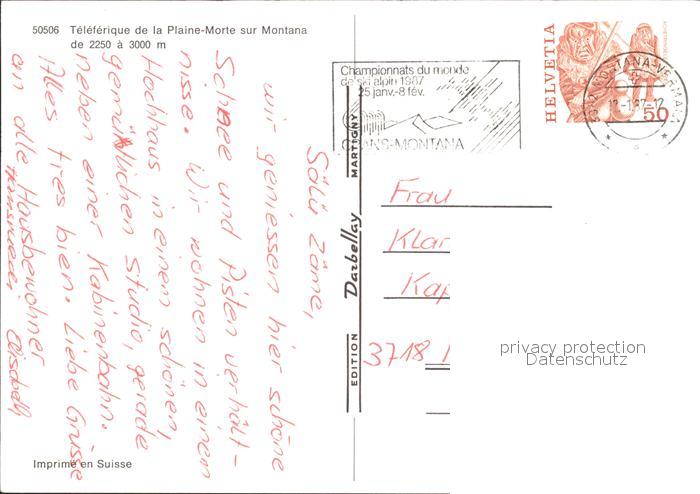 50506 Téléférique de la Plaine-Morte sur Montana
de 2250 à 3000 m
Sälü zäme,
wir geniessen hier schöne
Schnee und Pistenverhält-
nisse. Wir wohnen in einem
Hochhaus in einem schönen,
gemütlichen Studio, gerade
neben einer Kabinenbahn.
Alles tres bien. Liebe Grüsse
an alle Hausbewohner
Elisabeth
Imprimé en Suisse
EDITION Darbellay MARTIGNY
Championnats du monde
de ski alpin 1987
25 janv.-8 fév.
CRANS-MONTANA
HELVETIA
50
MONTANA-VERMALA
12-1.87-12
Frau
Klar
Kap
3718
privacy protection
Datenschutz